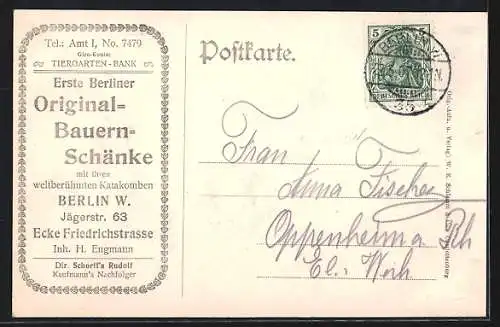 Tel.: Amt I, No. 7479
Giro-Conto:
TIERGARTEN-BANK
Erste Berliner
Original-
Bauern-
Schänke
mit ihren
weltberühmten Katakomben
BERLIN W.
Jägerstr. 63
Ecke Friedrichstrasse
Inh. H. Engmann
Dir. Schorff's Rudolf
Kaufmann's Nachfolger
Postkarte.
5
BERLIN W.
35
Frau
Anna Fischer
Oppenheim a Rh